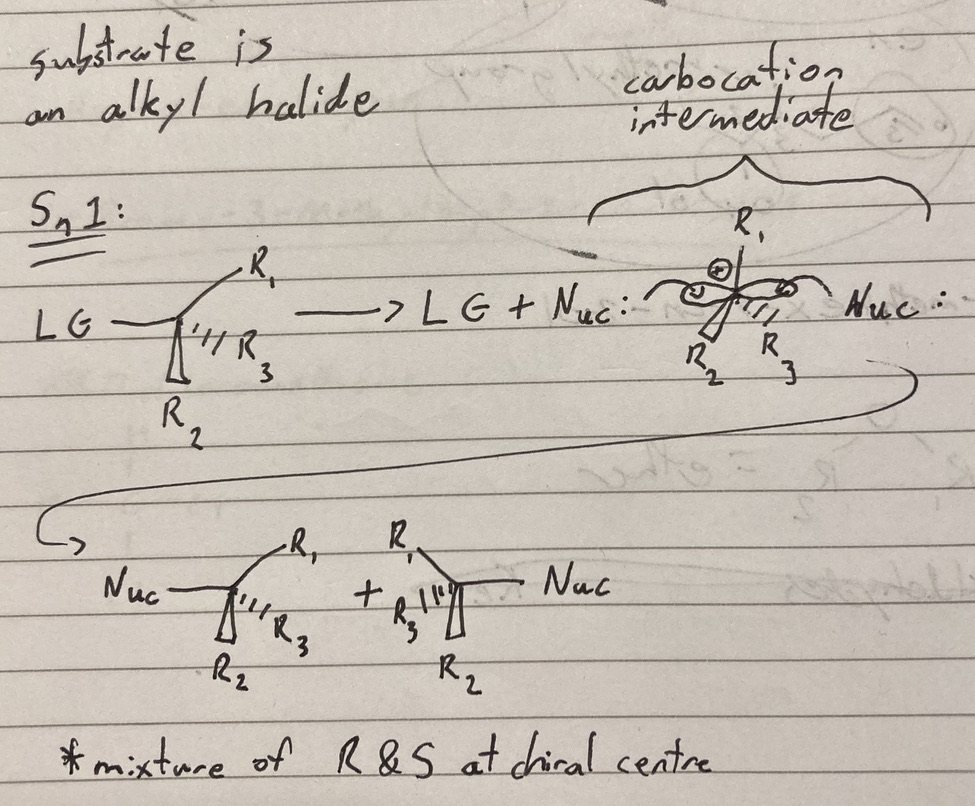 substrate is
an alkyl halide
carbocation
intermediate
Sn1:
R1
LG
R3
R2
LG + Nuc:
R1
⊕
R2
R3
Nuc:
Nuc
R1
R3
R2
+
R1
R3
R2
Nuc
*mixture of R & S at chiral centre